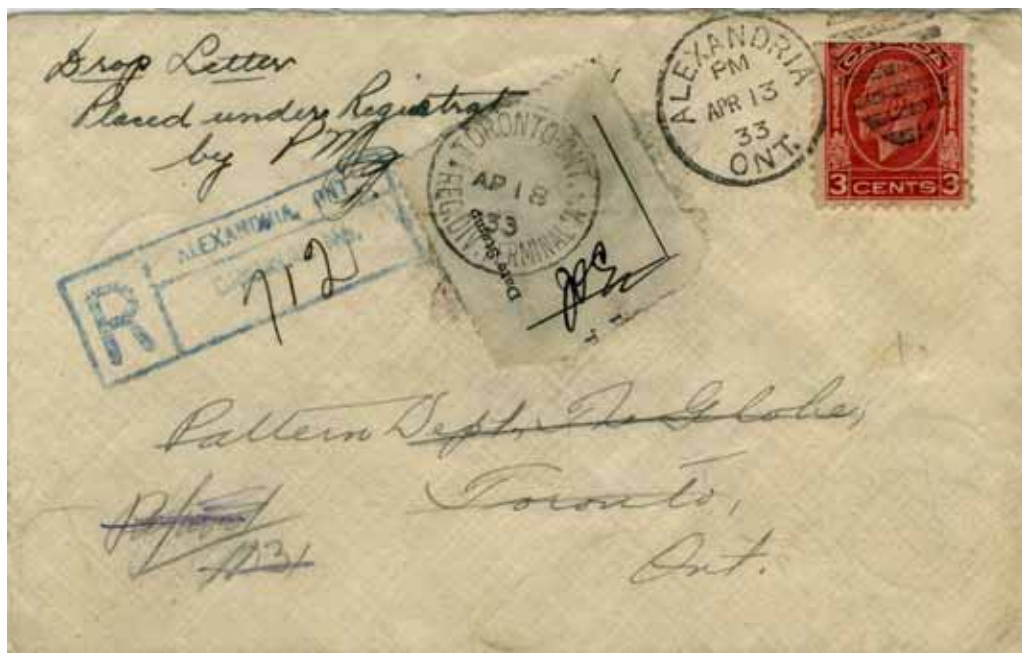 Drop Letter
Placed under Registrat
by PM
ALEXANDRIA
PM
APR 13
33
ONT.
CANADA
3 CENTS 3
TORONTO-ONT.
AP 18
33
TERMINAL
Date Stamp
R
ALEXANDRIA, ONT.
712
Pattern Dept. The Globe,
Toronto,
Ont.